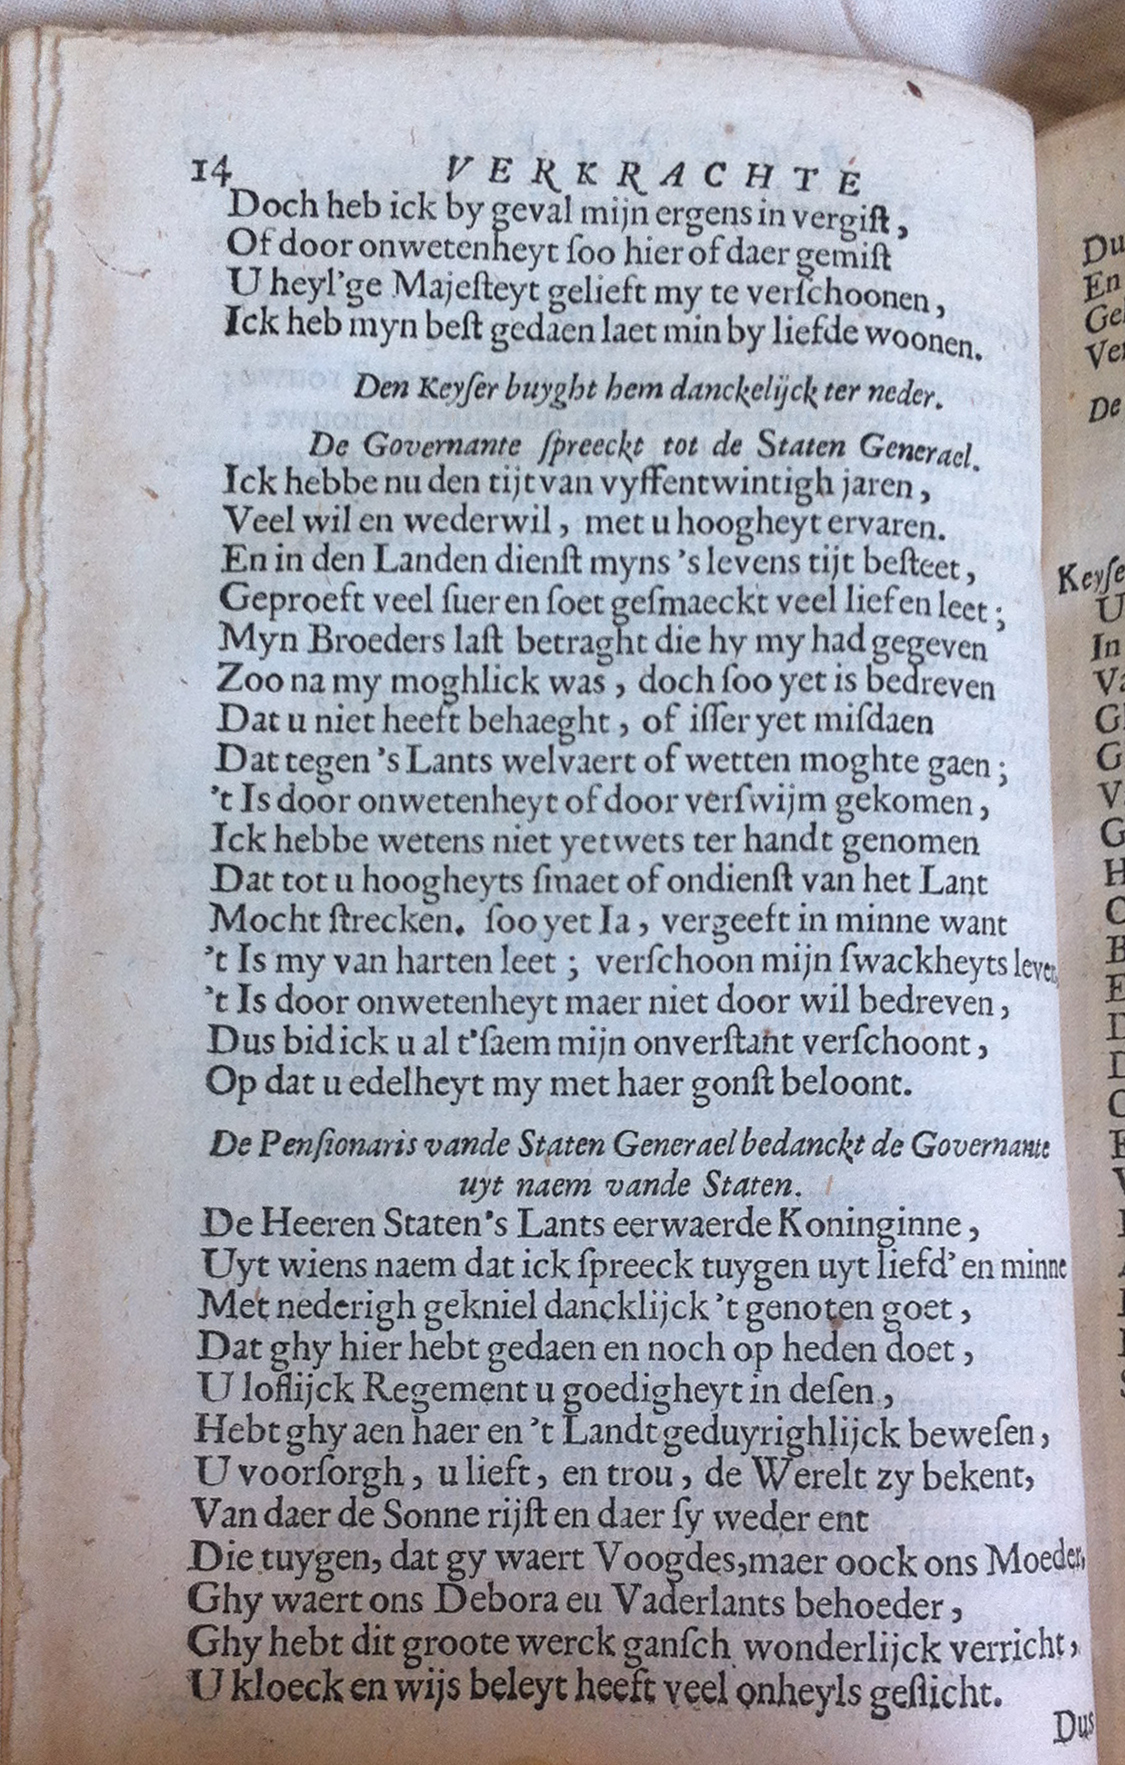 14 VERKRACHTE
Doch heb ick by geval mijn ergens in vergist,
Of door onwetenheyt soo hier of daer gemist
U heyl'ge Majesteyt gelieft my te verschoonen,
Ick heb myn best gedaen laet min by liefde woonen.
Den Keyser buyght hem danckelijck ter neder.
De Governante spreeckt tot de Staten Generael.
Ick hebbe nu den tijt van vyffentwintigh jaren,
Veel wil en wederwil, met u hoogheyt ervaren.
En in den Landen dienst myns 's levens tijt besteet,
Geproeft veel suer en soet gesmaeckt veel lief en leet;
Myn Broeders last betraght die hy my had gegeven
Zoo na my moghlick was, doch soo yet is bedreven
Dat u niet heeft behaeght, of isser yet misdaen
Dat tegen 's Lants welvaert of wetten moghte gaen;
't Is door onwetenheyt of door verswijm gekomen,
Ick hebbe wetens niet yetwets ter handt genomen
Dat tot u hoogheyts smaet of ondienst van het Lant
Mocht strecken. soo yet Ia, vergeeft in minne want
't Is my van harten leet; verschoon mijn swackheyts leven
't Is door onwetenheyt maer niet door wil bedreven,
Dus bid ick u al t'saem mijn onverstant verschoont,
Op dat u edelheyt my met haer gonst beloont.
De Pensionaris vande Staten Generael bedanckt de Governante
uyt naem vande Staten.
De Heeren Staten's Lants eerwaerde Koninginne,
Uyt wiens naem dat ick spreeck tuygen uyt liefd' en minne
Met nederigh gekniel dancklijck 't genoten goet,
Dat ghy hier hebt gedaen en noch op heden doet,
U loflijck Regement u goedigheyt in desen,
Hebt ghy aen haer en 't Landt geduyrighlijck bewesen,
U voorsorgh, u lieft, en trou, de Werelt zy bekent,
Van daer de Sonne rijst en daer sy weder ent
Die tuygen, dat gy waert Voogdes,maer oock ons Moeder,
Ghy waert ons Debora eu Vaderlants behoeder,
Ghy hebt dit groote werck gansch wonderlijck verricht,
U kloeck en wijs beleyt heeft veel onheyls geslicht.
Dus